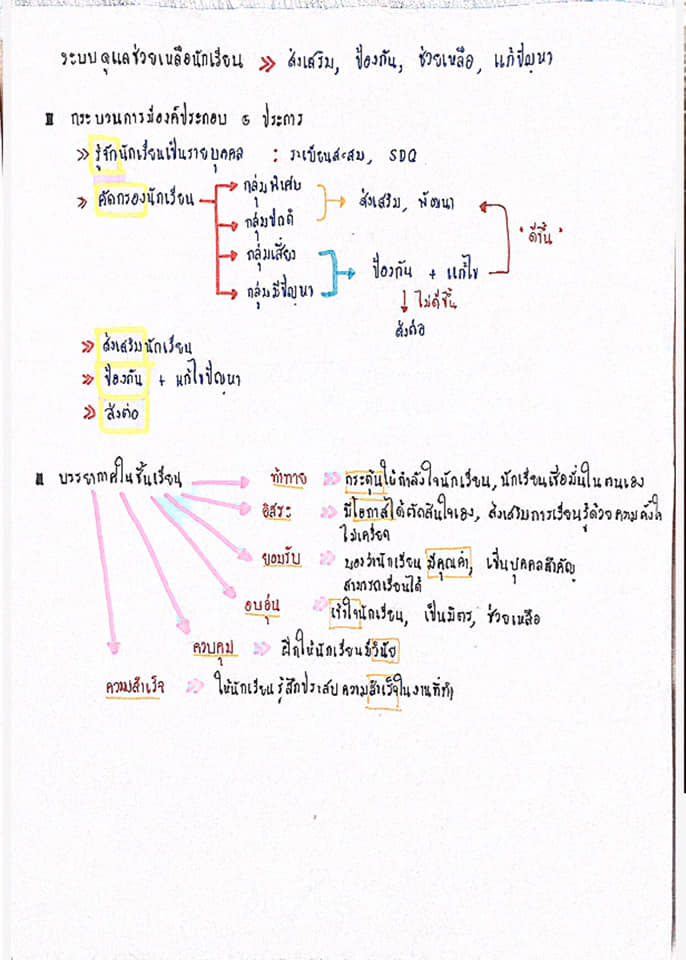 ระบบดูแลช่วยเหลือนักเรียน >> ส่งเสริม, ป้องกัน, ช่วยเหลือ, แก้ปัญหา
กระบวนการมีองค์ประกอบ ๕ ประการ
>> รู้จักนักเรียนเป็นรายบุคคล : ระเบียนสะสม, SDQ
>> คัดกรองนักเรียน
กลุ่มพิเศษ
กลุ่มปกติ
ส่งเสริม, พัฒนา
กลุ่มเสี่ยง
กลุ่มมีปัญหา
ป้องกัน + แก้ไข
"ดีขึ้น"
ไม่ดีขึ้น
ส่งต่อ
>> ส่งเสริมนักเรียน
>> ป้องกัน + แก้ไขปัญหา
>> ส่งต่อ
บรรยากาศในชั้นเรียน
ท้าทาย >> กระตุ้นให้กำลังใจนักเรียน, นักเรียนเชื่อมั่นในตนเอง
อิสระ >> มีโอกาสได้ตัดสินใจเอง, ส่งเสริมการเรียนรู้ด้วยความตั้งใจ
ไม่เครียด
ยอมรับ >> มองว่านักเรียนมีคุณค่า, เป็นบุคคลสำคัญ
สามารถเรียนได้
อบอุ่น >> เข้าใจนักเรียน, เป็นมิตร, ช่วยเหลือ
ควบคุม >> ฝึกให้นักเรียนมีวินัย
ความสำเร็จ >> ให้นักเรียนรู้สึกประสบความสำเร็จในงานที่ทำ